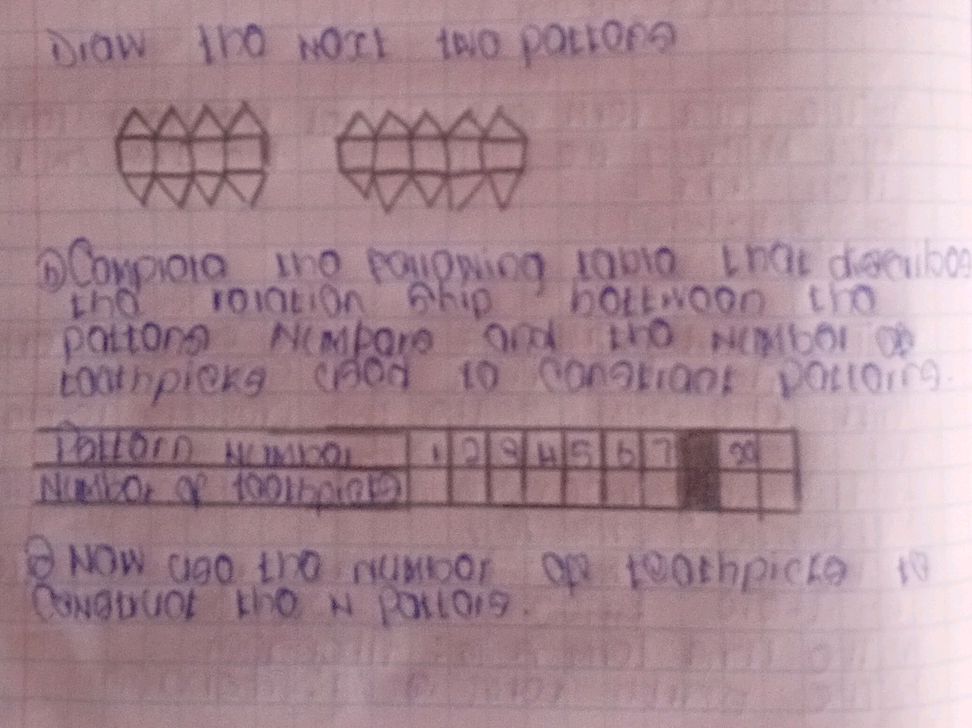 Draw the next two patterns
b) Complete the following table that describes
the relation ship bettween the
pattens Numbers and the number of
toothpicks used to constract patterns.
Pattern number 1 2 3 4 5 6 7
Number of toothpicks
c) Now use the number of toothpicks to
construct the N patters.